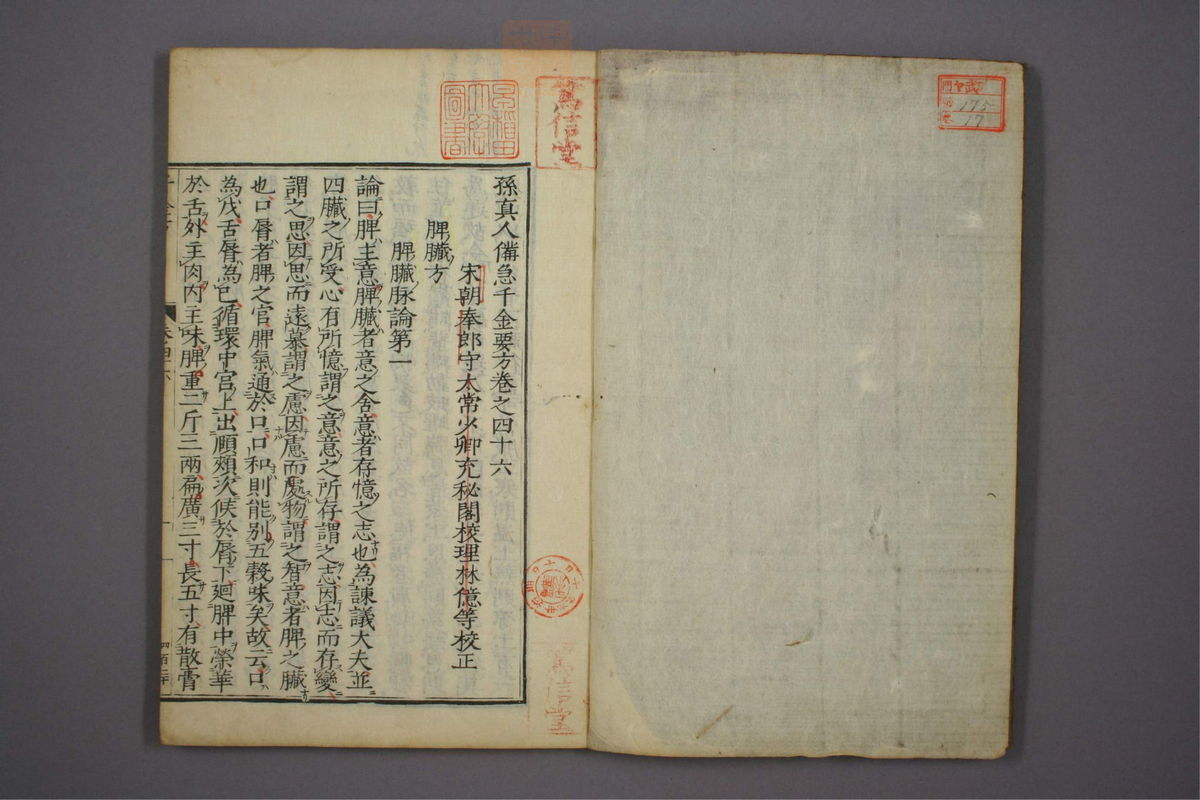 175
17
篤信堂
早稲田大學圖書
篤信堂
孫真人備急千金要方卷之四十六
宋朝奉郎守太常少卿充秘閣校理林億等校正
脾臓方
脾臓脉論第一
論曰脾主意脾臓者意之舍意者存憶之志也為諫議大夫並
四臓之所受心有所憶謂之意意之所存謂之志因志而存變
謂之思因思而遠慕謂之慮因慮而處物謂之智意者脾之臓
也口脣者脾之官脾氣通於口口和則能别五穀味矣故云口
為戊舌脣為已循環中宫上出頤頰次候於脣下廻脾中榮華
於舌外主肉内主味脾重二斤三兩扁廣三寸長五寸有散膏